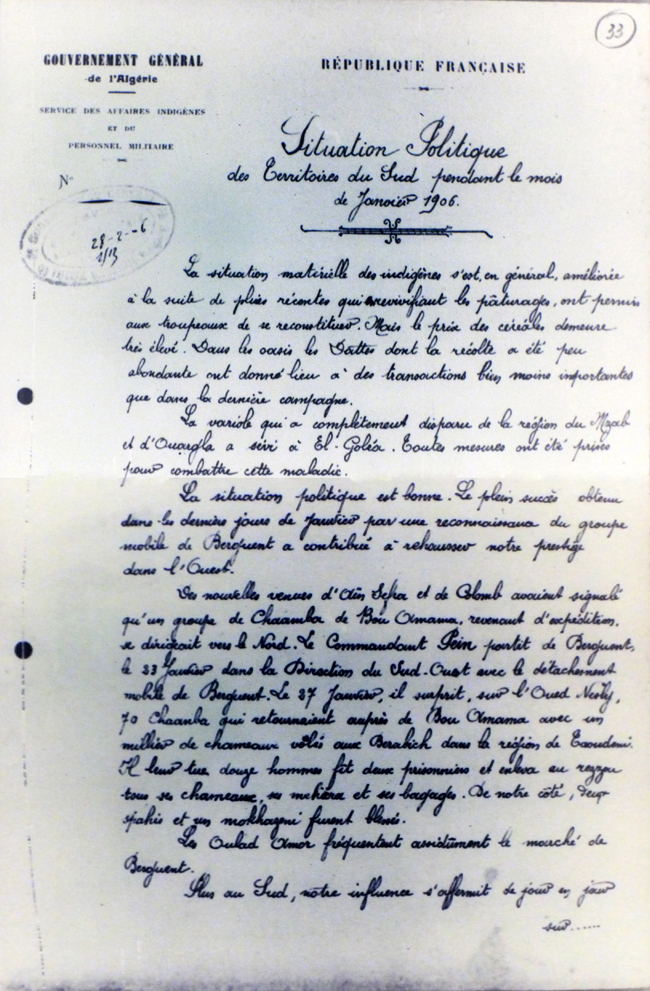 33
GOUVERNEMENT GÉNÉRAL
de l'Algérie
RÉPUBLIQUE FRANÇAISE
SERVICE DES AFFAIRES INDIGÈNES
ET DU
PERSONNEL MILITAIRE
N°
28-2-6
Situation Politique
des Territoires du Sud pendant le mois
de Janvier 1906.
La situation matérielle des indigènes s'est, en général, améliorée
à la suite de pluies récentes qui revivifiant les pâturages, ont permis
aux troupeaux de se reconstituer. Mais le prix des céréales demeure
très élevé. Dans les oasis les Dattes dont la récolte a été peu
abondante ont donné lieu à des transactions bien moins importantes
que dans la dernière campagne.
La variole qui a complètement disparu de la région du Mzab
et d'Ouargla a sévi à El-Goléa. Toutes mesures ont été prises
pour combattre cette maladie.
La situation politique est bonne. Le plein succès obtenu
dans les derniers jours de Janvier par une reconnaissance du groupe
mobile de Berguent a contribué à rehausser notre prestige
dans l'Ouest.
Des nouvelles venues d'Aïn Sefra et de Colomb avaient signalé
qu'un groupe de Chaamba de Bou Amama, revenant d'expédition,
se dirigeait vers le Nord. Le Commandant Pein partit de Berguent,
le 23 Janvier dans la Direction du Sud-Ouest avec le détachement
mobile de Berguent. Le 27 Janvier, il surprit, sur l'Oued
70 Chaanba qui retournaient auprès de Bou Amama avec un
millier de chameaux volés aux Berabich dans la région de Taoudeni.
Il leur tue douze hommes fit deux prisonniers et enleva au rezzou
tous ses chameaux, ses mehara et ses bagages. De notre côté, deux
spahis et un mokhazeni furent blessés.
Les Oulad Amor fréquentent assidûment le marché de
Berguent.
Plus au Sud, notre influence s'affermit de jour en jour
sur......